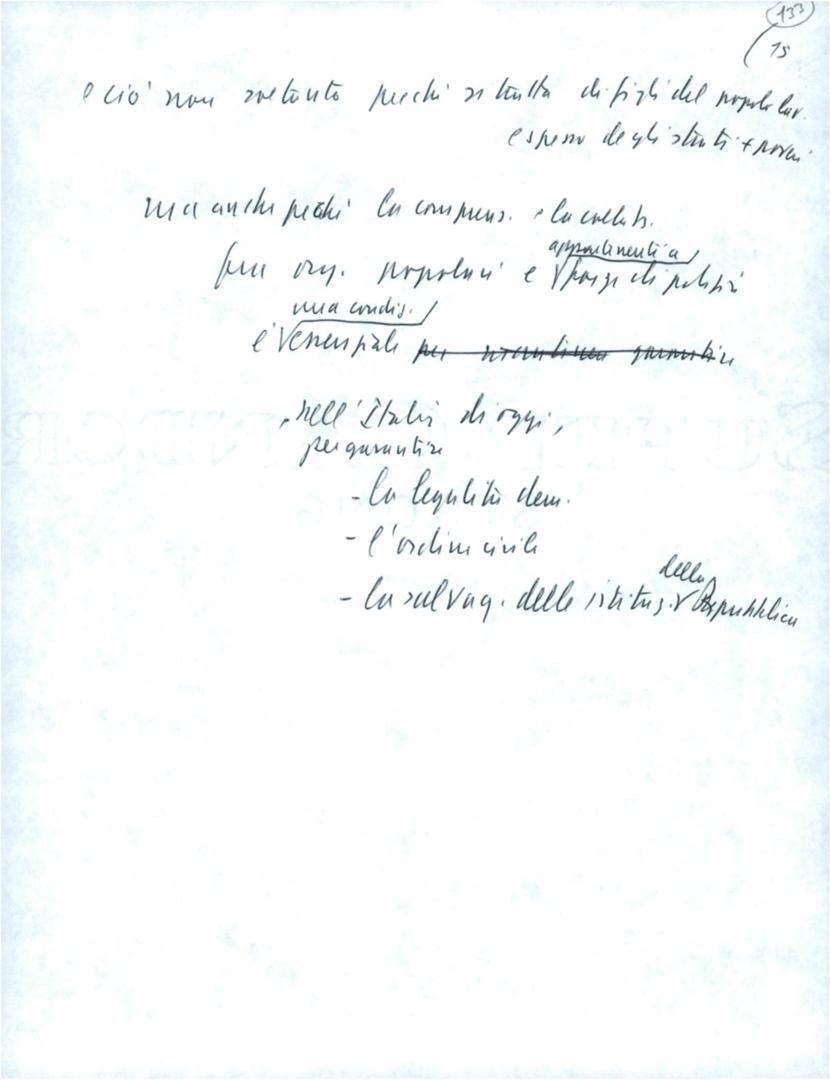 133
15
e ciò non soltanto perché si tratta di figli del popolo lav.
e spesso degli strati + poveri
ma anche perché la comprens. e la collab.
appartenenti a
fra org. popolari e forze di polizia
una condiz.
è essenziale per
nell'Italia di oggi,
per garantire
- la legalità dem.
- l'ordine civile
- la salvag. delle istituz. della Repubblica